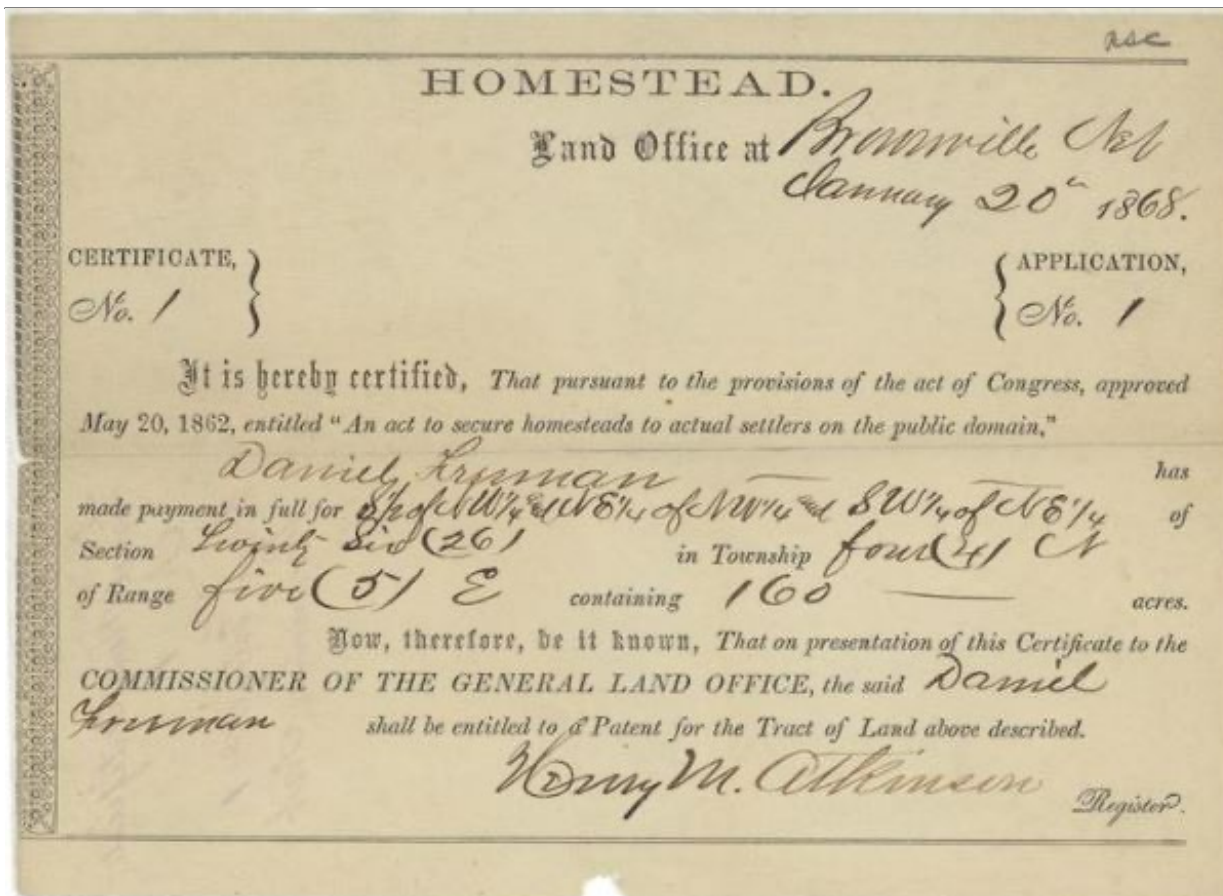 HOMESTEAD.
Land Office at Brownville Neb
January 20th 1868.
CERTIFICATE, No. 1
APPLICATION, No. 1
It is hereby certified, That pursuant to the provisions of the act of Congress, approved
May 20, 1862, entitled "An act to secure homesteads to actual settlers on the public domain,"
Daniel Freeman has
made payment in full for S½ of NW¼ and NE¼ of NW¼ and SW¼ of NE¼ of
Section Twenty Six (26) in Township four (4) N
of Range five (5) E containing 160 acres.
Now, therefore, be it known, That on presentation of this Certificate to the
COMMISSIONER OF THE GENERAL LAND OFFICE, the said Daniel
Freeman shall be entitled to a Patent for the Tract of Land above described.
Henry M. Atkinson
Register.